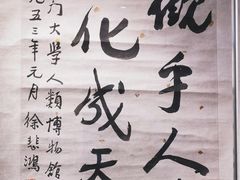 觀乎人
化成天
門大學人類博物館
九五三年元月 徐悲鴻